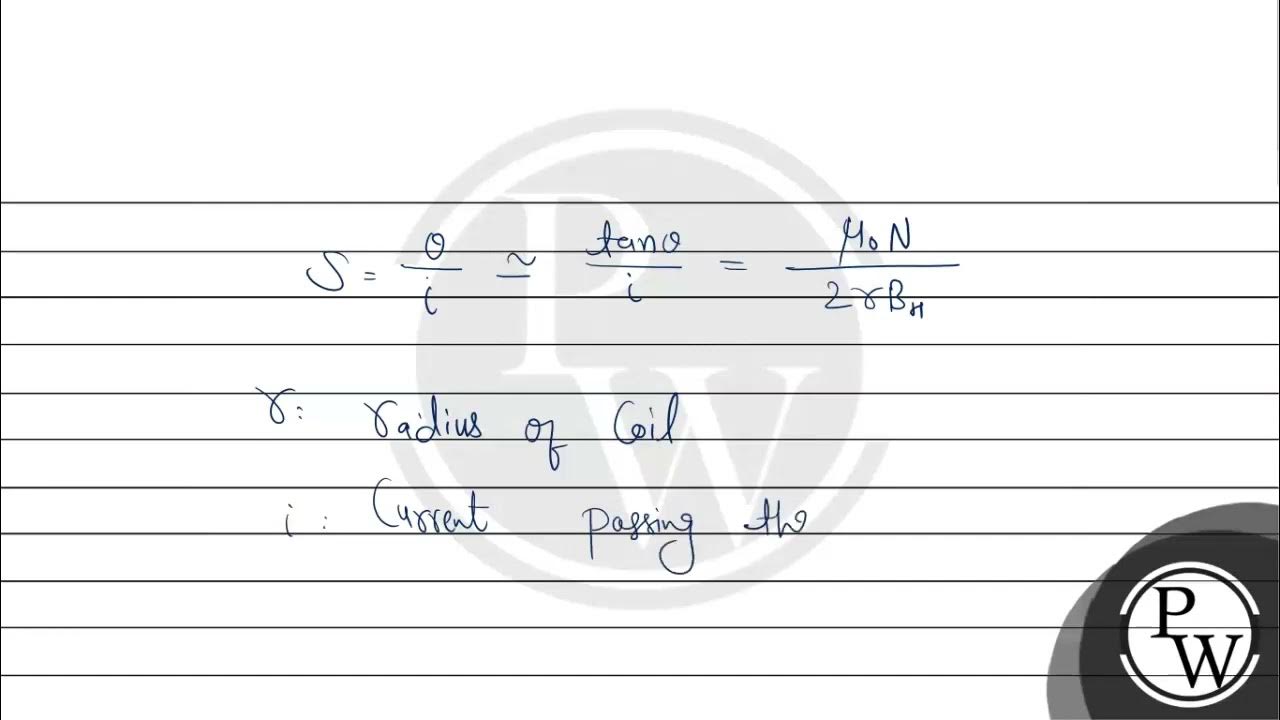 S = θ/i ≃ tanθ/i = μ₀N/2rB_H
r: radius of Coil
i: Current passing thr
PW
PW